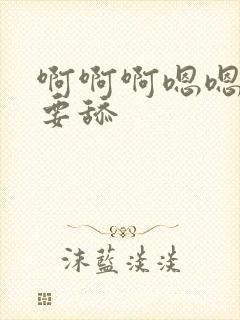 啊啊啊嗯嗯
要舔
沫蓝淡淡